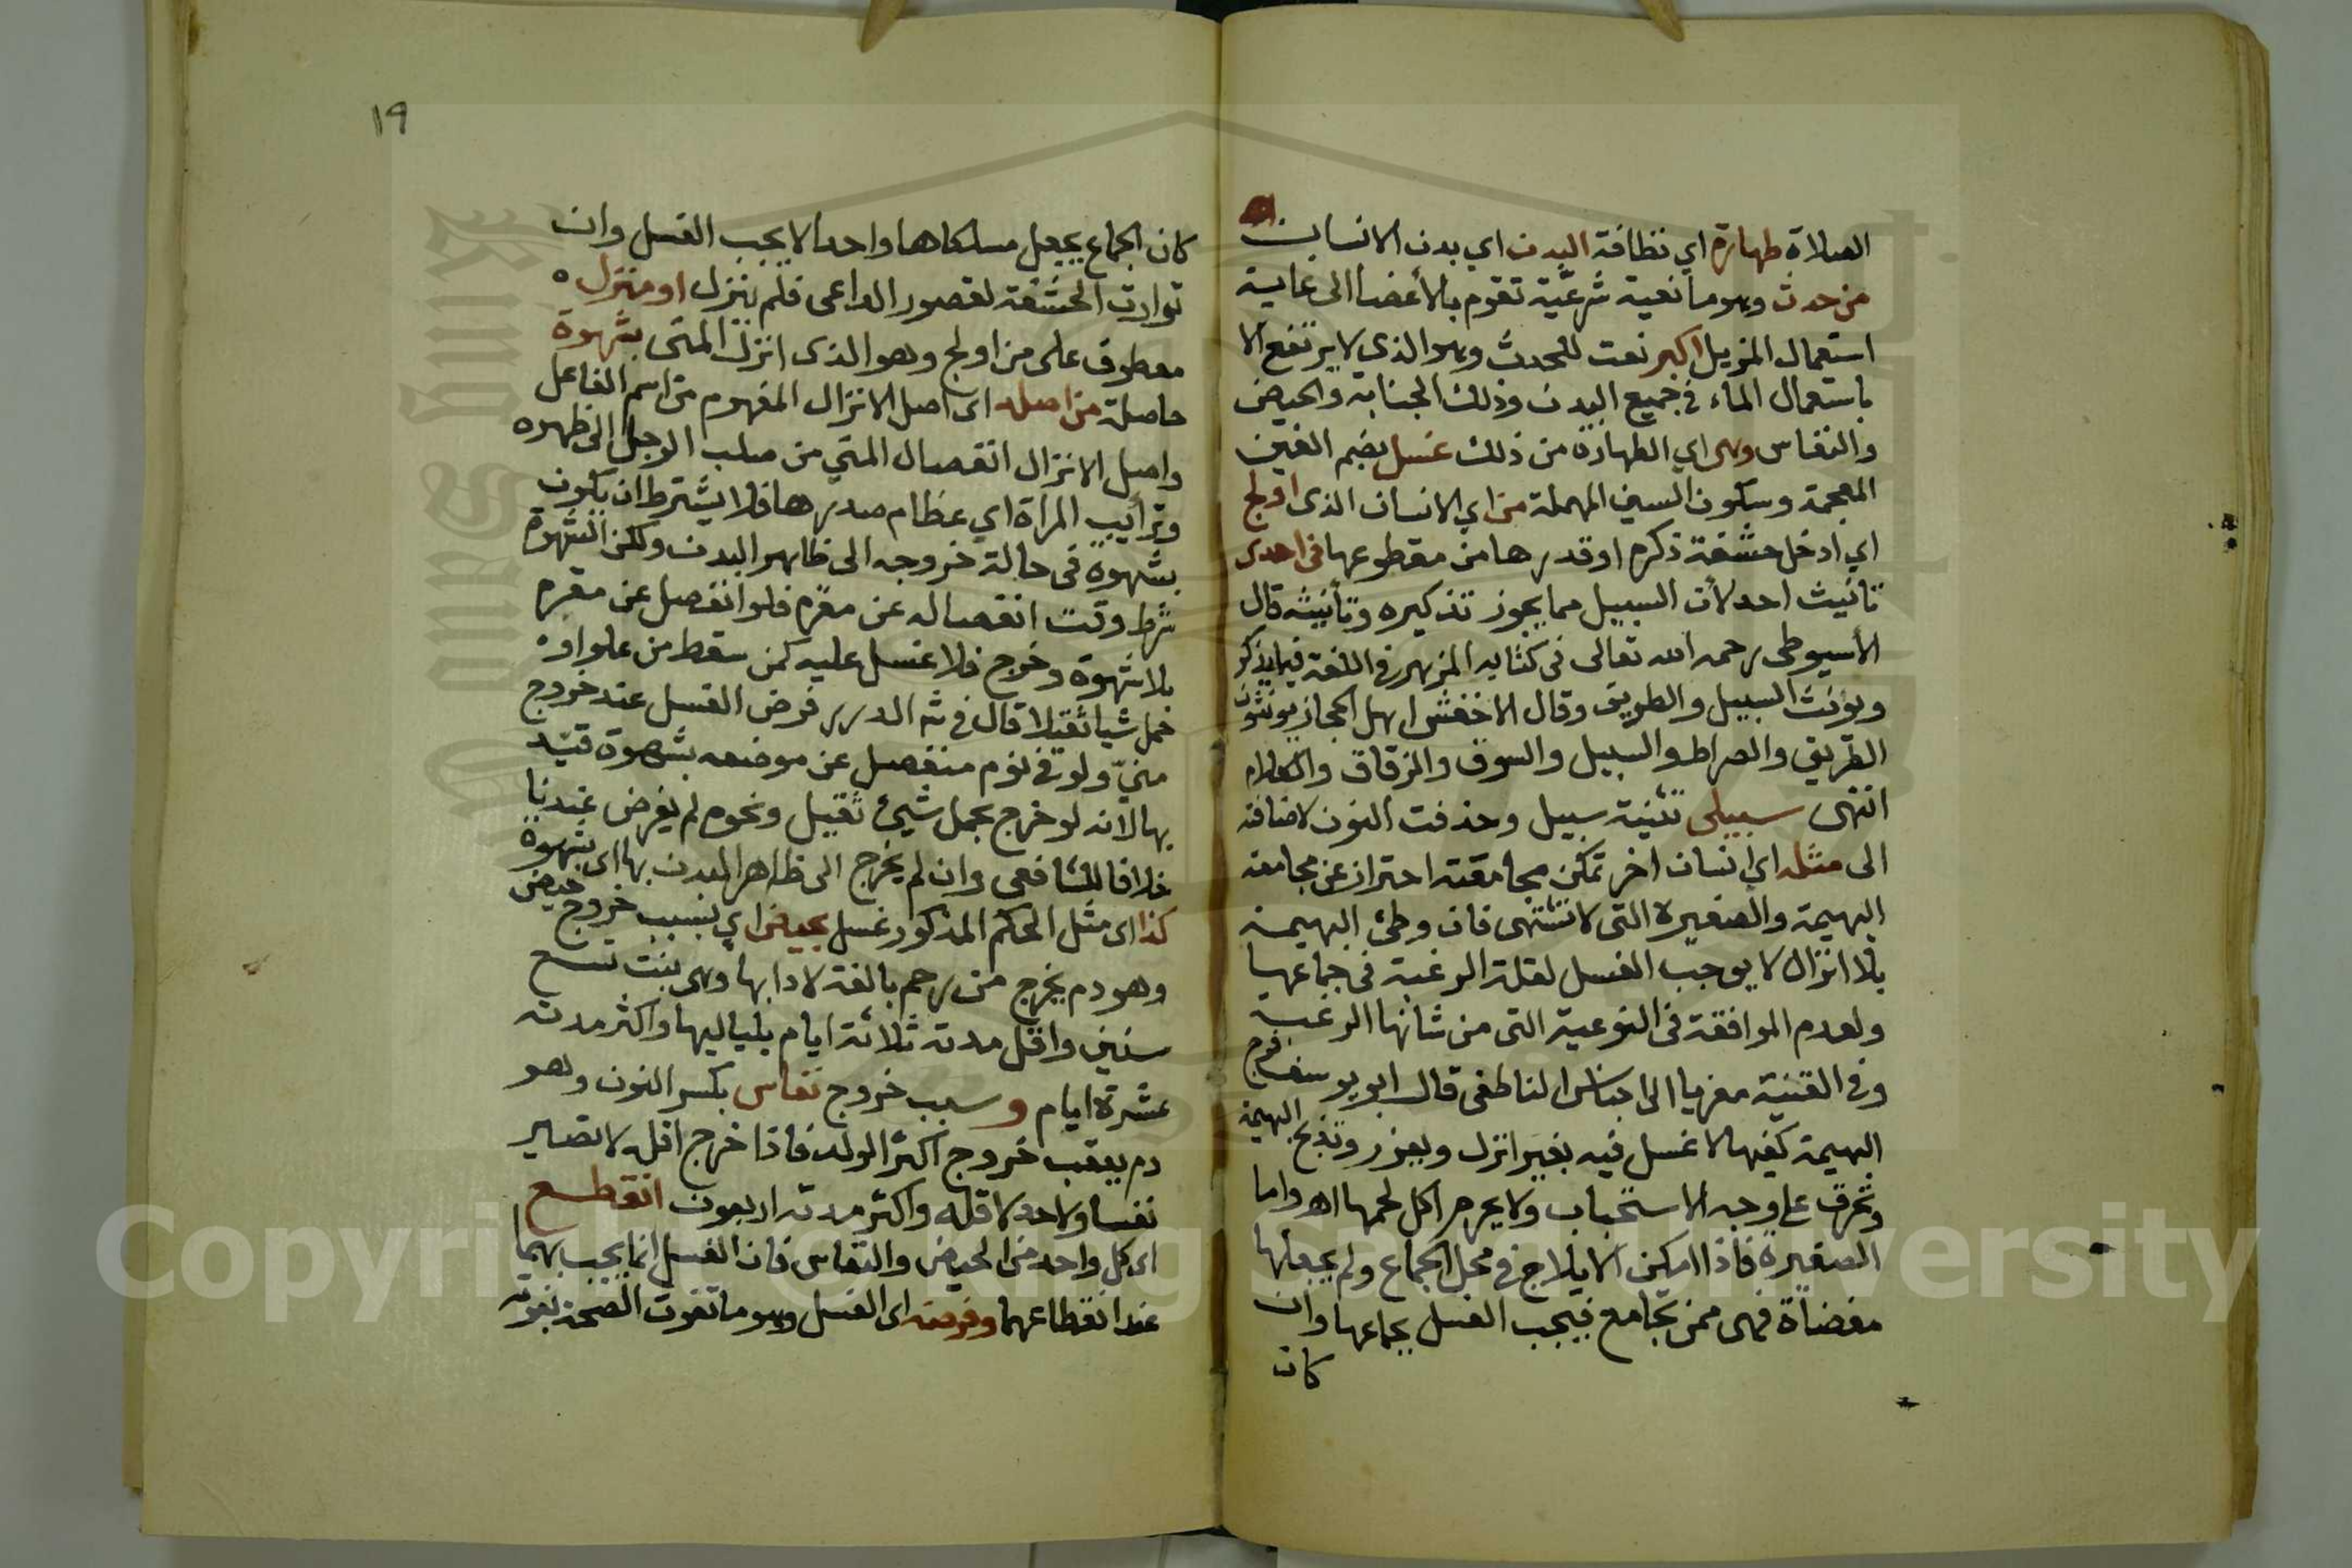 الصلاة طهارة اي نظافة البدن اي بدن الانسان
من حدث وهو مانعية شرعية تقوم بالأعضا الى غاية
استعمال المزيل اكبر نعت للحدث وهو الذي لا يرتفع الا
باستعمال الماء في جميع البدن وذلك الجنابة والحيض
والنفاس وهي اي الطهارة من ذلك غسل بضم الغين
المعجمة وسكون السين المهملة من اي الانسان الذي اولج
اي ادخل حشفة ذكره او قدرها من مقطوعها في احدى
تانيث احد لأن السبيل مما يجوز تذكيره وتأنيثه قال
الأسيوطي رحمه الله تعالى في كتابه المزهر في اللغة فيما يذكر
ويونث السبيل والطريق وقال الاخفش اهل الحجاز يونثون
الطريق والصراط والسبيل والسوق والزقاق والكلام
انتهى سبيلي تثنية سبيل وحذفت النون لاضافته
الى مثله اي انسان اخر تمكن مجامعته احتراز عن مجامعة
البهيمة والصغيرة التي لا تشتهى فان وطئ البهيمة
بلا انزال لا يوجب الغسل لقلة الرغبة في جماعها
ولعدم الموافقة في النوعية التي من شانها الرغبة
وفي القنية معزيا الى اجناس الناطفي قال ابو يوسف فرج
البهيمة كفيها لا غسل فيه بغير انزل ويعزر وتذبح البهيمة
وتحرق على وجه الاستحباب ولا يحرم اكل لحمها اه واما
الصغيرة فاذا امكن الايلاج في محل الجماع ولم يجعلها
مفضاة فهي ممن تجامع فيجب الغسل بجماعها وان
كان
١٩
كان الجماع يجعل مسلكاها واحدا لا يجب الغسل وان
توارت الحشفة لقصور الداعي فلم ينزل او منزل ه
معطوف على من اولج وهو الذي انزل المني بشهوة
حاصلة من اصله اي اصل الانزال المفهوم من اسم الفاعل
واصل الانزال انفصال المني من صلب الرجل الى ظهره
وترأيب المراة اي عظام صدرها فلا يشترط ان يكون
بشهوة في حالة خروجه الى ظاهر البدن ولكن الشهوة
شرط وقت انفصاله عن مقره فلو انفصل عن مقره
بلا شهوة وخرج فلا غسل عليه كمن سقط من علو او ه
حمل شيا ثقيلا قال في شرح الدرر فرض الغسل عند خروج
مني ولو في نوم منفصل عن موضعه بشهوة قيد
بها لانه لو خرج بحمل شيئ ثقيل ونحوه لم يفرض عندنا
خلافا للشافعي وان لم يخرج الى ظاهر البدن بها اي بشهوة
كذا اي مثل الحكم المذكور غسل بحيض اي بسبب خروج حيض
وهو دم يخرج من رحم بالغة لا دا بها وهي بنت تسع
سنين واقل مدته ثلاثة ايام بلياليها واكثر مدته
عشرة ايام و سبب خروج نفاس بكسر النون وهو
دم يعقب خروج اكثر الولد فاذا خرج اقله لا تصير
نفسا ولا حد لاقله واكثر مدته اربعون انقطع
اي كل واحد من الحيض والنفاس فان الغسل انما يجب بهما
عند انقطاعهما وفرضه اي الغسل وهو ما تفوت الصحة بفوته
Copyright © King Saud University